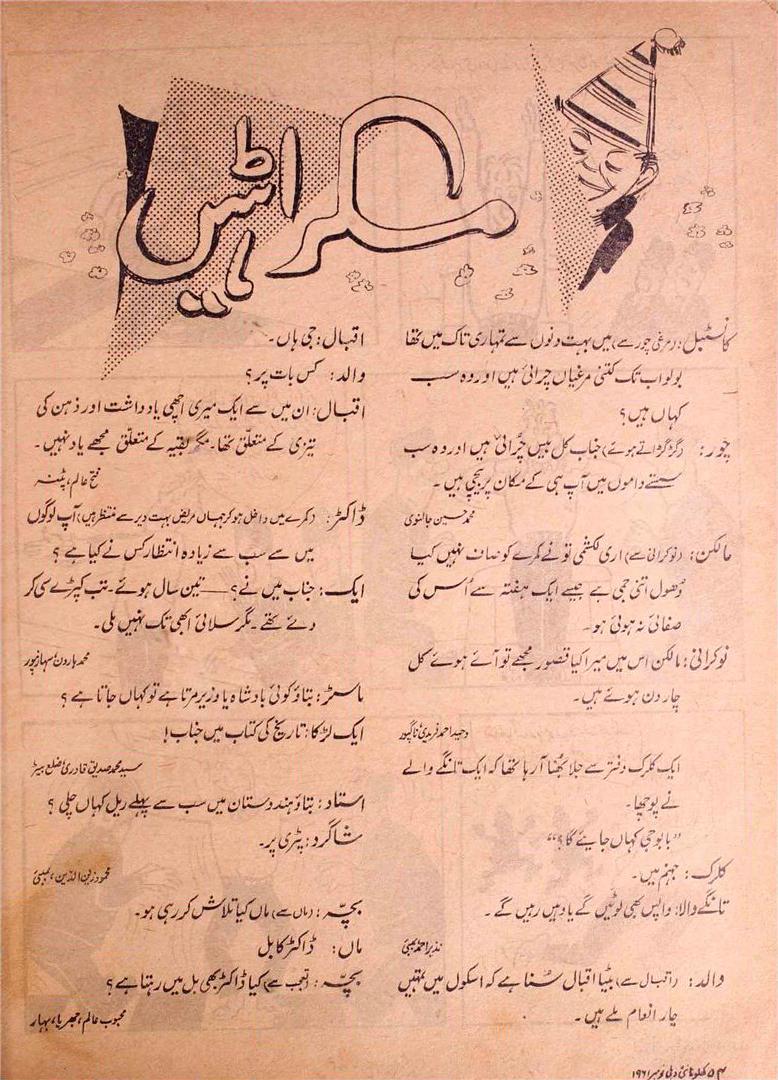 مسکراہٹیں
کانسٹبل: (مرغی چور سے) میں بہت دنوں سے تمہاری تاک میں تھا
بولو اب تک کتنی مرغیاں چرائی ہیں اور وہ سب
کہاں ہیں؟
چور: (گڑگڑاتے ہوئے) جناب کل بیس چرائی ہیں اور وہ سب
سستے داموں میں آپ ہی کے مکان پر بیچی ہیں۔
محمد حسین جالنوی
مالکن: (نوکرانی سے) اری لکشمی تو نے کمرے کو صاف نہیں کیا
دھول اتنی جمی ہے جیسے ایک ہفتہ سے اُس کی
صفائی نہ ہوئی ہو۔
نوکرانی: مالکن اس میں میرا کیا قصور مجھے تو آئے ہوئے کل
چار دن ہوئے ہیں۔
وحید احمد فریدی ناگپور
ایک کلرک دفتر سے جلا بھُنا آ رہا تھا کہ ایک تانگے والے
نے پوچھا۔
"بابو جی کہاں جایئے گا؟"
کلرک: جہنم میں۔
تانگے والا: واپس بھی لوٹیں گے یا وہیں رہیں گے۔
نذیر احمد بمبئی
والد: (اقبال سے) بیٹا اقبال سُنا ہے کہ اسکول میں تمہیں
چار انعام ملے ہیں۔
اقبال: جی ہاں۔
والد: کس بات پر؟
اقبال: ان میں سے ایک میری اچھی یادداشت اور ذہن کی
تیزی کے متعلق تھا۔ مگر بقیہ کے متعلق مجھے یاد نہیں۔
فتح عالم، پٹنہ
ڈاکٹر: (کمرے میں داخل ہو کر جہاں مریض بہت دیر سے منتظر ہیں) آپ لوگوں
میں سے سب سے زیادہ انتظار کس نے کیا ہے؟
ایک: جناب میں نے؟ — تین سال ہوئے۔ تب کپڑے سی کر
دئے تھے۔ مگر سلائی ابھی تک نہیں ملی۔
محمد ہارون سہارنپور
ماسٹر: بتاؤ کوئی بادشاہ یا وزیر مرتا ہے تو کہاں جاتا ہے؟
ایک لڑکا: تاریخ کی کتاب میں جناب!
سید محمد صدیق قادری ضلع بیڑ
استاد: بتاؤ ہندوستان میں سب سے پہلے ریل کہاں چلی؟
شاگرد: پٹری پر۔
محمود زین الدین، بمبئی
بچّہ: (ماں سے) ماں کیا تلاش کر رہی ہو۔
ماں: ڈاکٹر کا بل
بچّہ: (تعجب سے) کیا ڈاکٹر بھی بل میں رہتا ہے؟
محبوب عالم، جھریا، بہار
۵۴ کھلونا نئی دہلی نومبر ۱۹۶۱